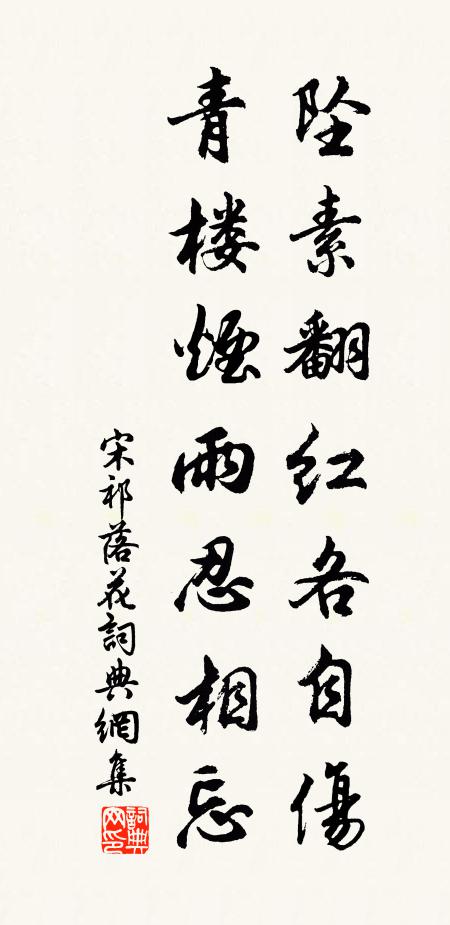 坠素翻红各自傷
青楼煙雨忍相忘
宋祁落花詞典網集
詞典网印